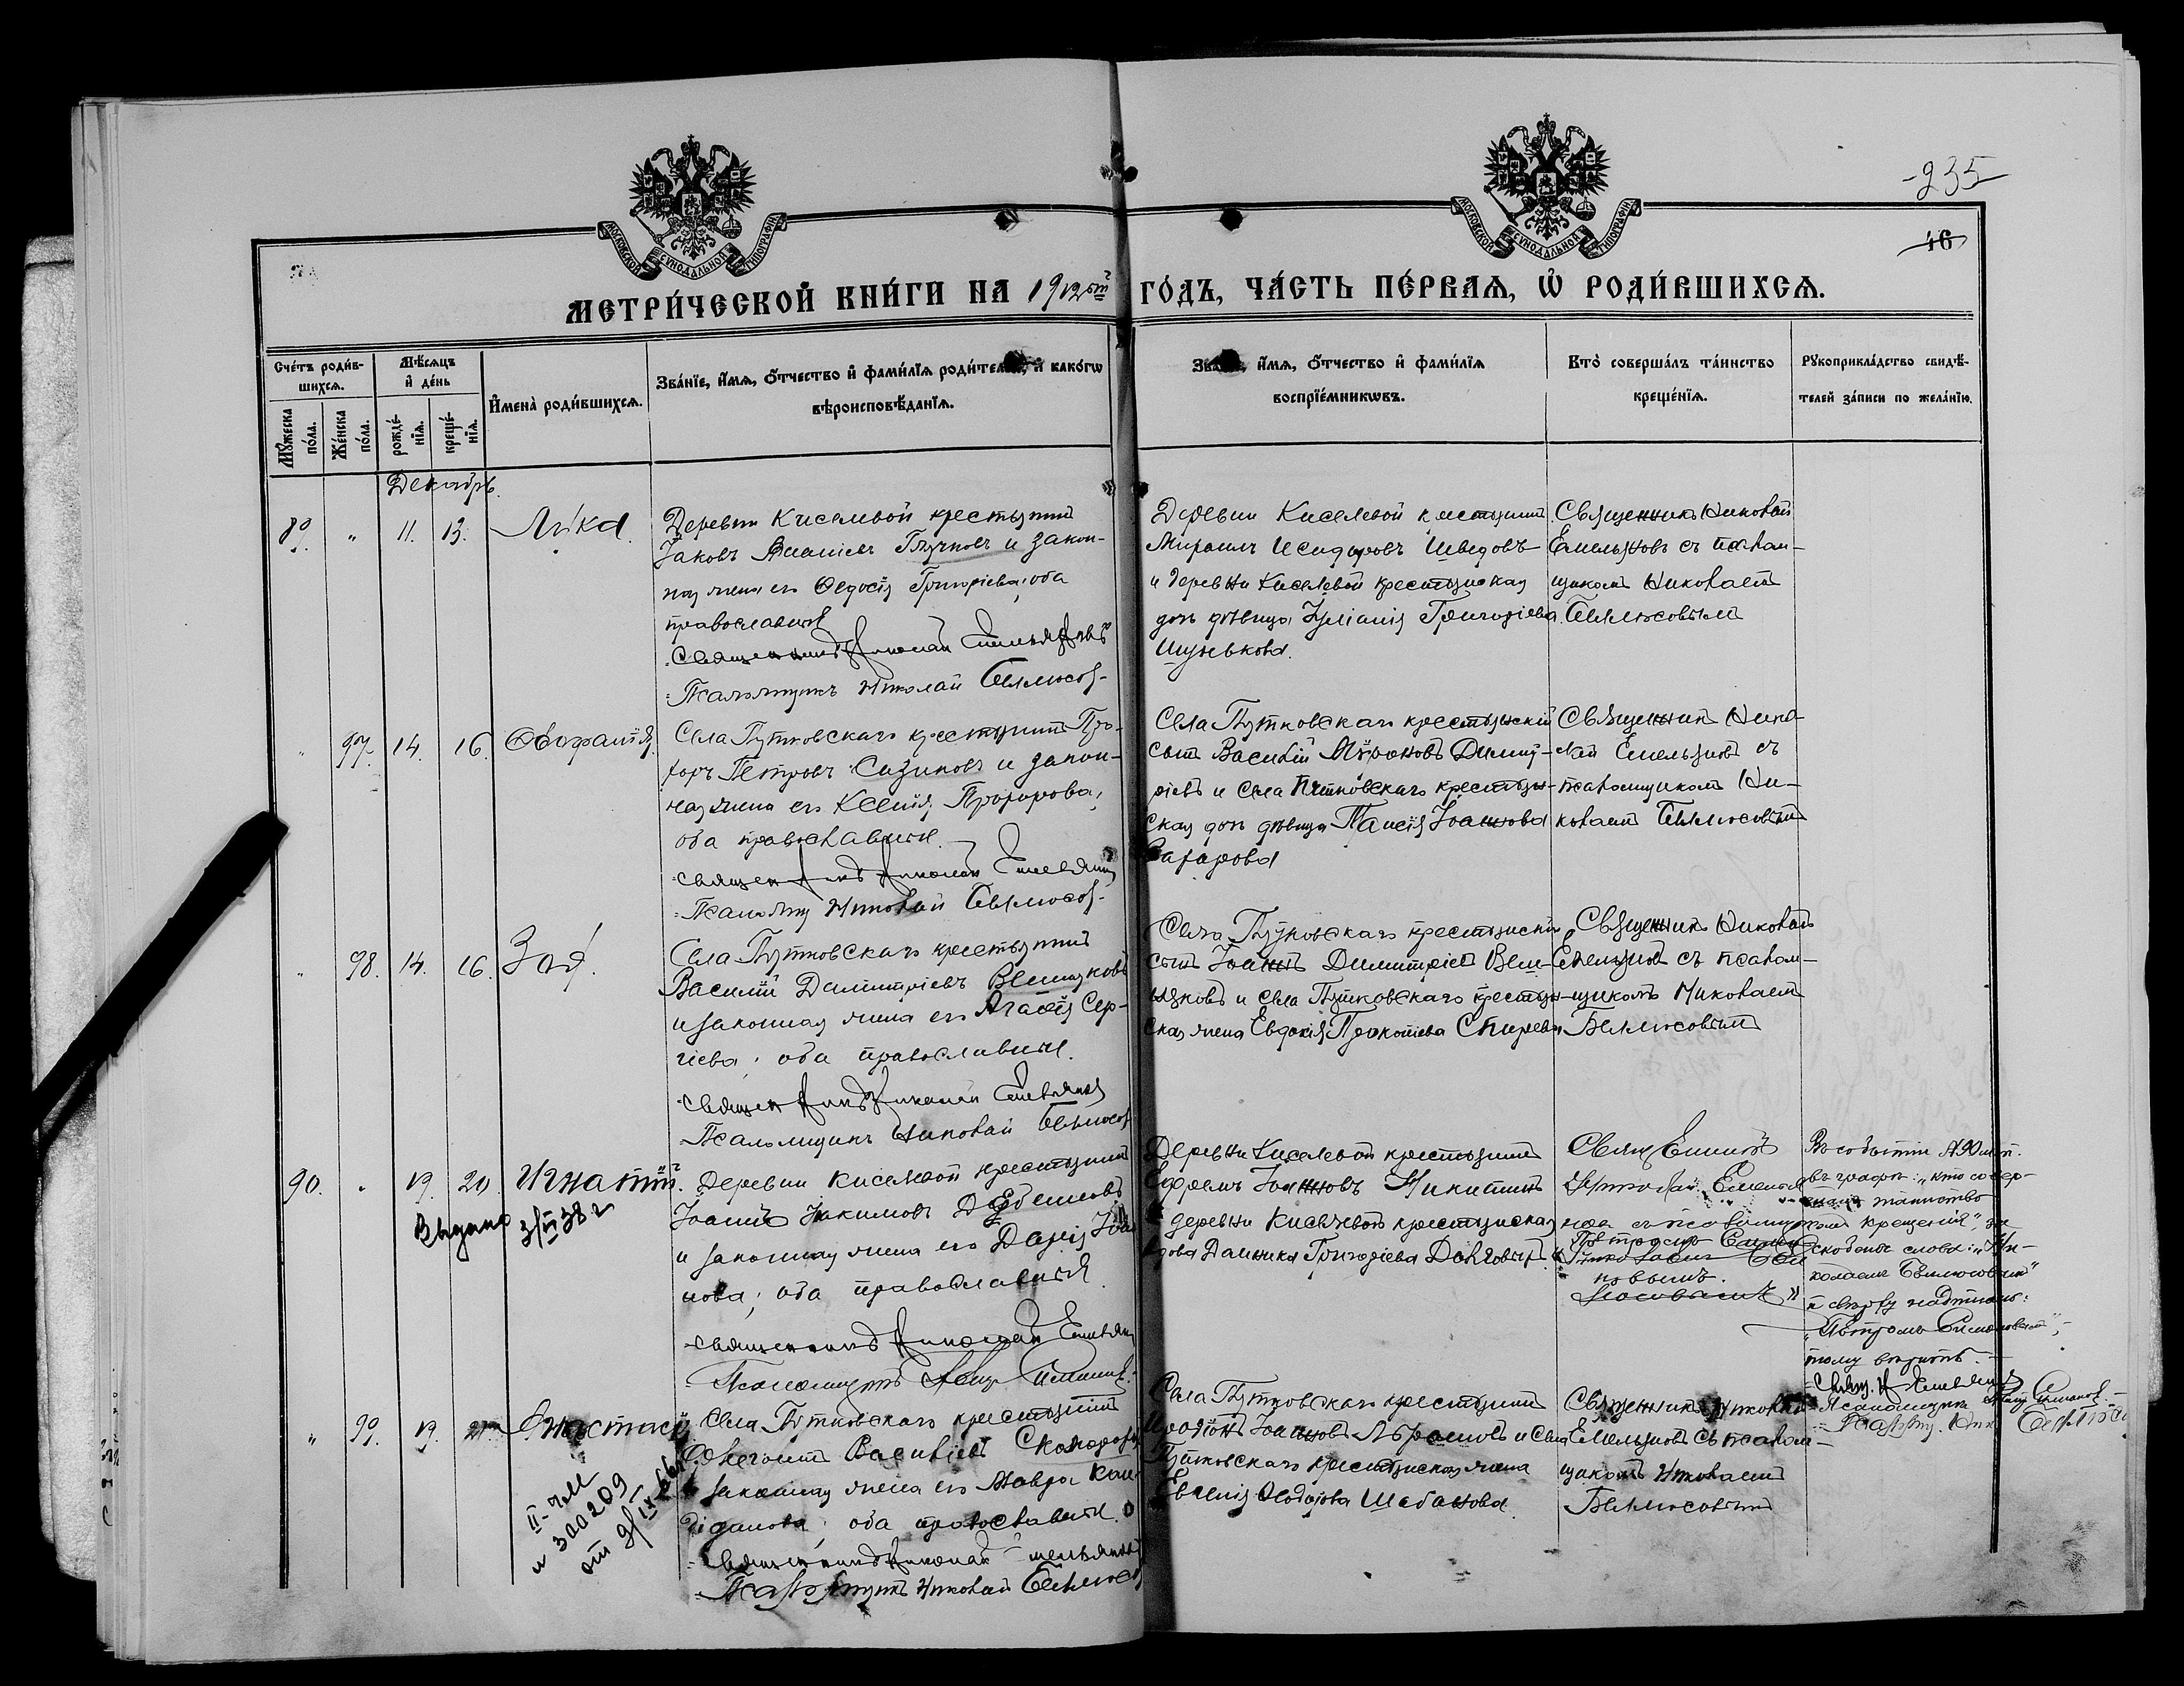 235
46
МОСКОВСКОЙ СУНОДАЛЬНОЙ ТИПОГРАФІИ
МОСКОВСКОЙ СУНОДАЛЬНОЙ ТИПОГРАФІИ
МЕТРИ́ЧЕСКОЙ КНИ́ГИ НА 1912ый ГО́ДЪ, ЧА́СТЬ ПЕ́РВАЯ, Ѡ РОДИ́ВШИХСЯ.
Сче́тъ роди́в-
шихся.
Мѣ́сяцъ
и де́нь
Му́жеска по́ла.
Же́нска по́ла.
рожде́-
нія.
креще́-
нія.
Имена̀ роди́вшихся.
Зва́нїе, и́мя, о́тчество и фами́лїя роди́телей, и како́гѡ
вѣроисповѣ́данїя.
Зва́нїе, и́мя, о́тчество и фами́лїя
воспрїе́мникѡвъ.
Кто̀ соверша́лъ та́инство
креще́нїя.
Рукоприкла́дство свидѣ́-
телей за́писи по жела́нїю.
Декабрь.
89. " 11. 13. Лука.
Деревни Киселевой крестьянинъ
Іаковъ Глучковъ и закон-
ная жена его Ѳедосія Григоріева; оба
православные
Священникъ Николай Емельяновъ
Псаломщикъ Николай Бѣлюсов
Деревни Киселевой крестьянинъ
Михаилъ Исидоровъ Шведовъ
и деревни Киселевой крестьянская
дочь дѣвица Іуліанія Григоріева
Шунькова.
Священникъ Николай
Емельяновъ съ псалом-
щикомъ Николаемъ
Бѣлюсовымъ
" 97. 14. 16. Ѳеофанія.
Села Путковскаго крестьянинъ Про-
хоръ Петровъ Сизиковъ и закон-
ная жена его Ксенія Прохорова;
оба православные.
Священникъ Николай Емельянов
Псаломщ Николай Бѣлюсов
Села Путковскаго крестьянскій
сынъ Василій Мѵроновъ Димит-
ріевъ и села Путковскаго крестьян-
ская дочь дѣвица Таисія Іоаннова
Захарова
Священникъ Нико-
лай Емельяновъ съ
псаломщикомъ Ни-
колаемъ Бѣлюсовымъ
" 98. 14. 16. Зоя.
Села Путковскаго крестьянинъ
Василій Димитріевъ Вешняковъ
и законная жена его Агафія Сер-
гіева; оба православные.
Священникъ Николай Емельянов
Псаломщикъ Николай Бѣлюсов
Села Путковскаго крестьянскій
сынъ Іоаннъ Димитріевъ Веш-
няковъ и села Путковскаго крестьян-
ская жена Евдокія Прокопіева Спирева
Священникъ Николай
Емельяновъ съ псалом-
щикомъ Николаемъ
Бѣлюсовымъ
90. " 19. 20. Игнатій.
Выдано 3/III 38 г
Деревни Киселевой крестьянинъ
Іоаннъ Іакимовъ
и законная жена его Дарія Іоан-
нова; оба православные
Священникъ Николай Емельян
Псаломщикъ Петръ Симонов
Деревни Киселевой крестьянинъ
Ефремъ Іоанновъ Никитинъ
и деревни Киселевой крестьянская
вдова Домника Григоріева
Священникъ
Николай Емелья-
новъ съ псаломщи-
Петромъ Симо
Николаемъ Бѣл
новымъ.
люсовымъ "
Въ событіи № 90 муж. п.
въ графѣ: „кто совер-
шалъ таинство
крещенія", за
скоблено слова: „Ни-
колаемъ Бѣлюсовымъ"
и сверху надписано:
„Петромъ Симоновымъ",
тому вѣрить.
Свящ. Н Емельянов
Псаломщикъ Петръ Симонов.
Псаломщ. Ник Бѣлюсов
" 99. 19. 21. Анастасія
II-ЧМ
№ 300209
от 9/IX
Села Путковскаго крестьянинъ
Василіевъ Скоморохов
и законная жена его Мавра Кал-
; оба православные.
Священникъ Николай Емельянов
Псаломщикъ Николай Бѣлюсов
Села Путковскаго крестьянинъ
Іоанновъ Абрамовъ и села
Путковскаго крестьянская жена
Евгенія Ѳеодорова Шабанова.
Священникъ Николай
Емельяновъ съ псалом-
щикомъ Николаемъ
Бѣлюсовымъ